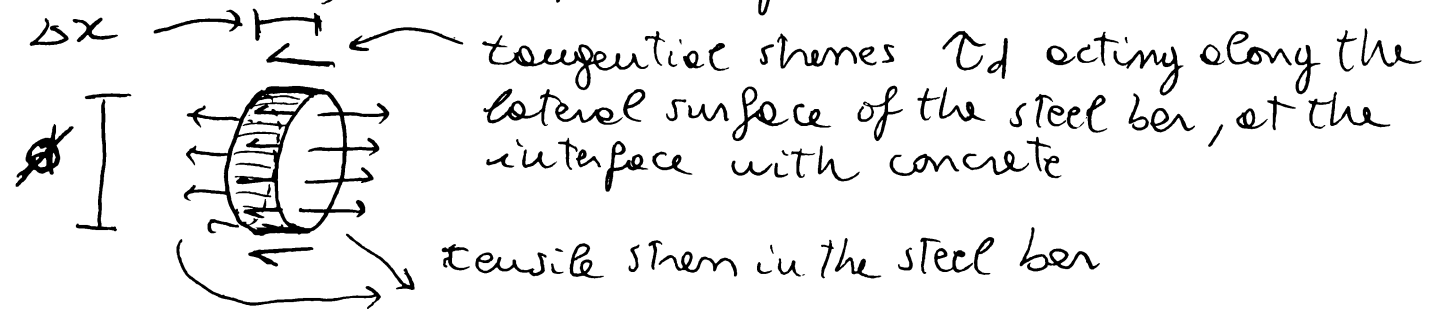 Δx
tangential stresses τd acting along the
lateral surface of the steel bar, at the
interface with concrete
ø
tensile stress in the steel bar